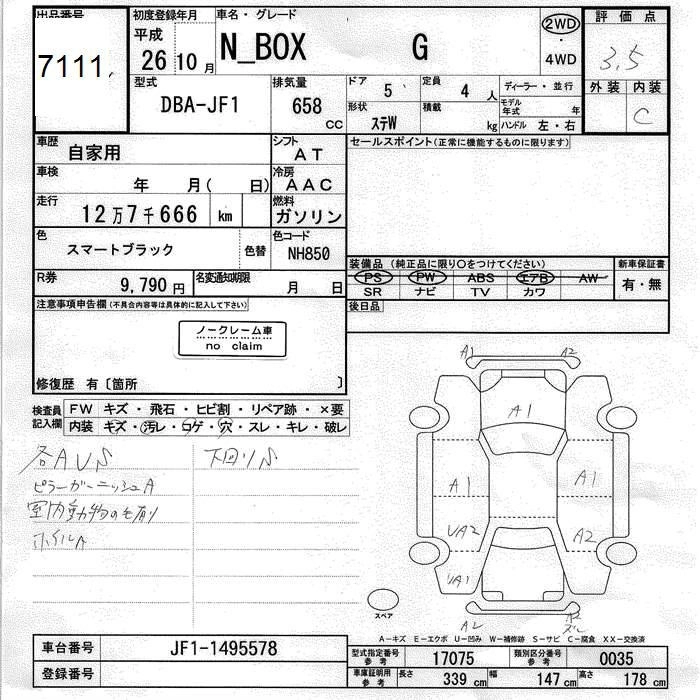 出品番号 初度登録年月 車名・グレード 評価点
平成
7111 26 10月 N_BOX G 2WD 3.5
4WD
型式 排気量 ドア 定員 ディーラー・並行 外装 内装
DBA-JF1 658 CC 5 4 人 C
形状 積載 モデル年式 年
ステW kg ハンドル 左・右
車歴 自家用 シフト AT セールスポイント(正常に機能するものに限ります)
車検 年 月( 日) 冷房 AAC
走行 12万7千666 km 燃料 ガソリン
色 スマートブラック 色替 色コード NH850
装備品 (純正品に限り○をつけてください) 新車保証書
PS PW ABS エアB AW 有・無
SR ナビ TV カワ
R券 9,790円 名変通知期限 月 日
後日品
注意事項申告欄(不具合内容等は具体的に記入して下さい)
ノークレーム車
no claim
修復歴 有〔箇所 〕
検査員記入欄 FW キズ・飛石・ヒビ割・リペア跡・×要
内装 キズ・汚レ・コゲ・穴・スレ・キレ・破レ
各AUS 下回りS
ピラーガーニッシュA
室内動物の毛有り
ホイルA
A1 A2
A1
A1 A1
UA2 A2
UA1
スペア
A2 A2
A-キズ E-エクボ U-凹み W-補修跡 S-サビ C-腐食 XX-交換済
車台番号 JF1-1495578
登録番号
型式指定番号 参考 17075 類別区分番号 参考 0035
車庫証明用 参考 長さ 339 cm 幅 147 cm 高さ 178 cm